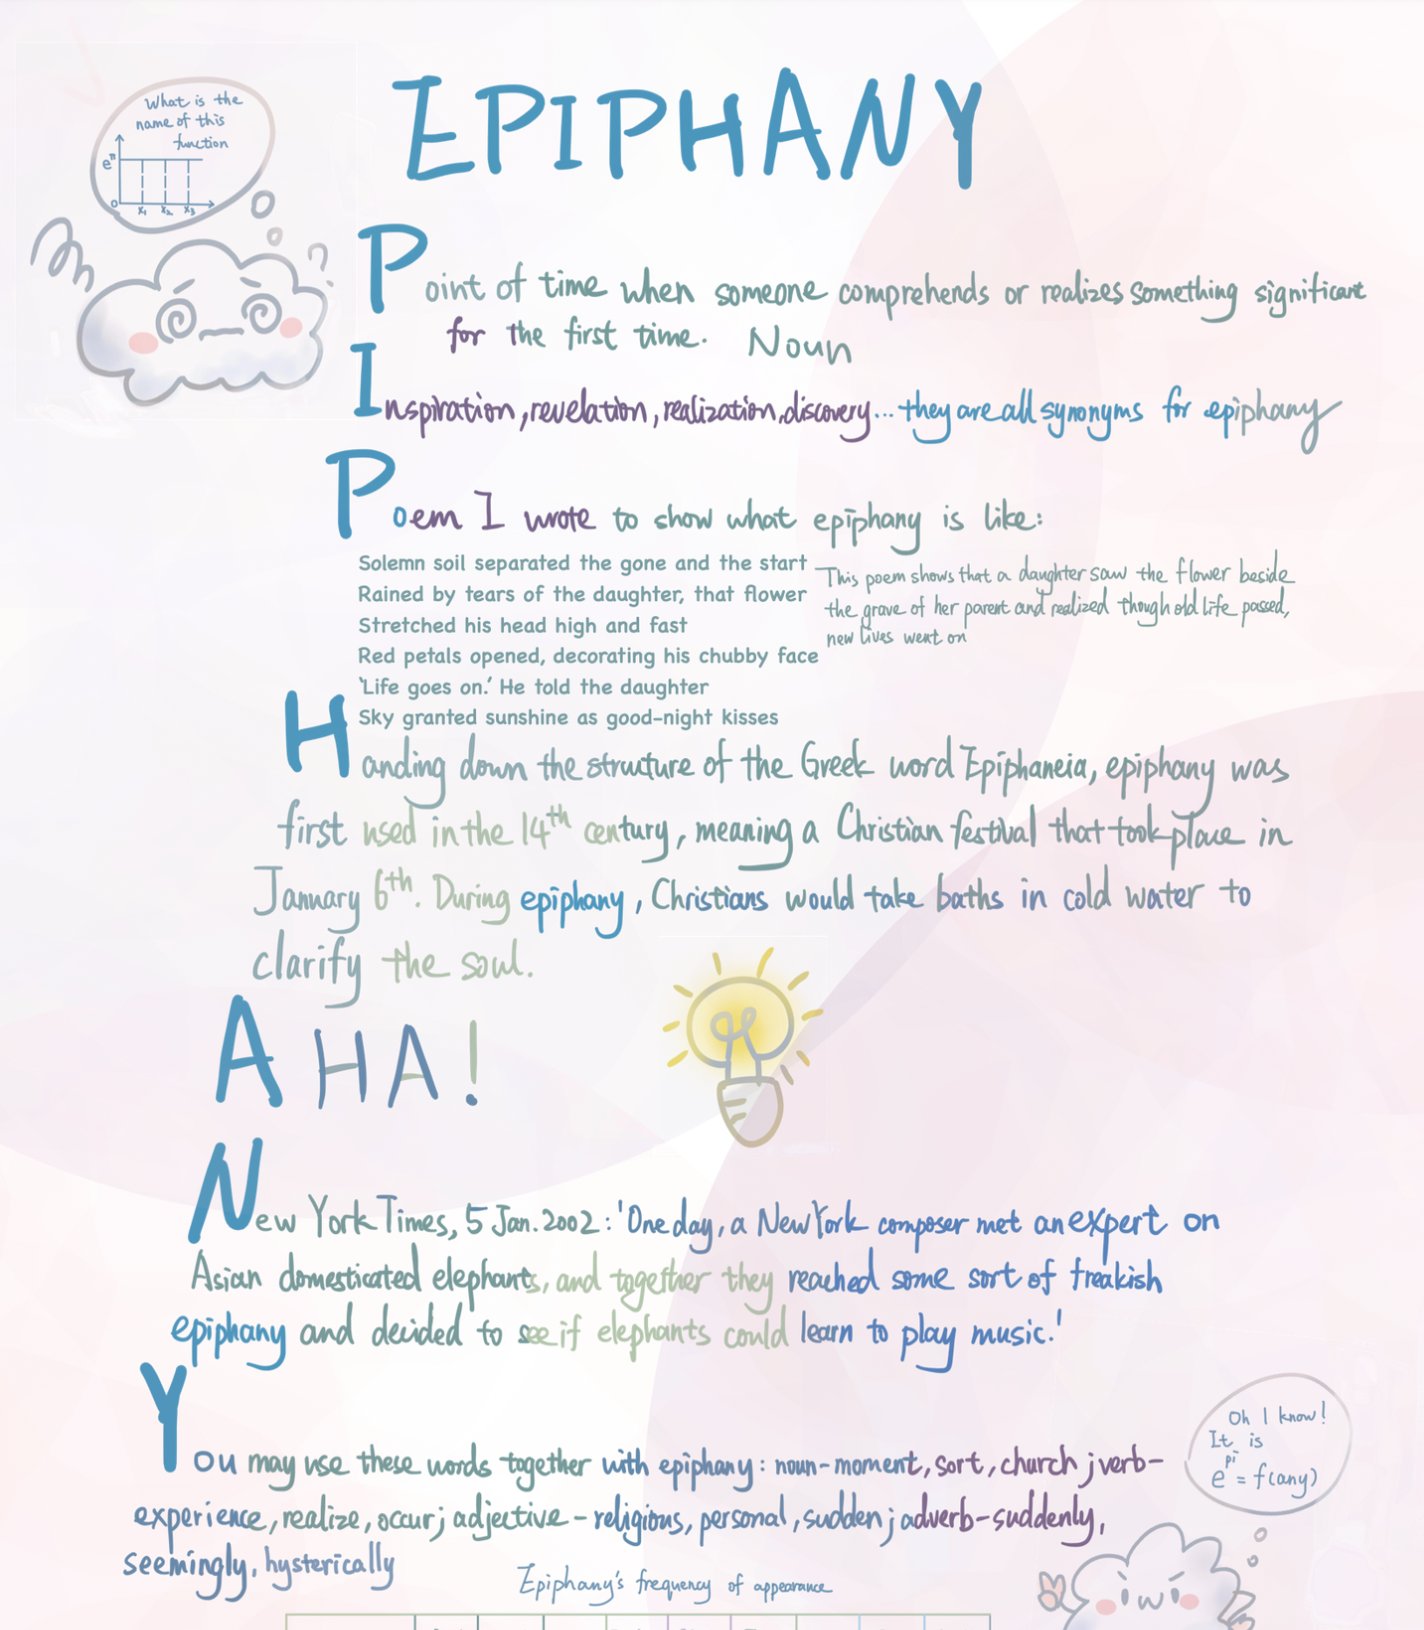 What is the
name of this
function
e^π
0
x₁ x₂ x₃
EPIPHANY
Point of time when someone comprehends or realizes something significant
for the first time. Noun
Inspiration, revelation, realization, discovery... they are all synonyms for epiphany
Poem I wrote to show what epiphany is like:
Solemn soil separated the gone and the start
Rained by tears of the daughter, that flower
Stretched his head high and fast
Red petals opened, decorating his chubby face
'Life goes on.' He told the daughter
Sky granted sunshine as good-night kisses
This poem shows that a daughter saw the flower beside
the grave of her parent and realized though old life passed,
new lives went on
Handing down the structure of the Greek word Epiphaneia, epiphany was
first used in the 14th century, meaning a Christian festival that took place in
January 6th. During epiphany, Christians would take baths in cold water to
clarify the soul.
AHA!
New York Times, 5 Jan. 2002: 'One day, a New York composer met an expert on
Asian domesticated elephants, and together they reached some sort of freakish
epiphany and decided to see if elephants could learn to play music.'
You may use these words together with epiphany: noun-moment, sort, church; verb-
experience, realize, occur; adjective-religious, personal, sudden; adverb-suddenly,
seemingly, hysterically
Oh I know!
It is
e^pi = f(any)
Epiphany's frequency of appearance